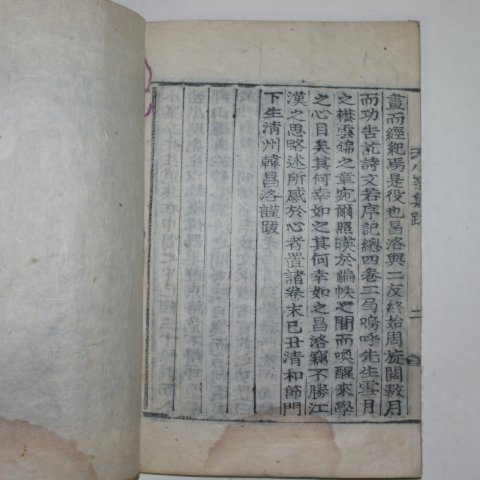 畫而經紀焉是役也昌洛與二友終始周旋閱數月
而功告訖詩文若序記總四卷二局嗚呼先生雪月
之襟雲錦之章宛爾照暎於編帙之間而喚醒來學
之心目矣其何幸如之其何幸如之昌洛竊不勝江
漢之思略述所感於心者置諸卷末己丑清和節門
下生清州韓昌洛謹跋
集跋
二